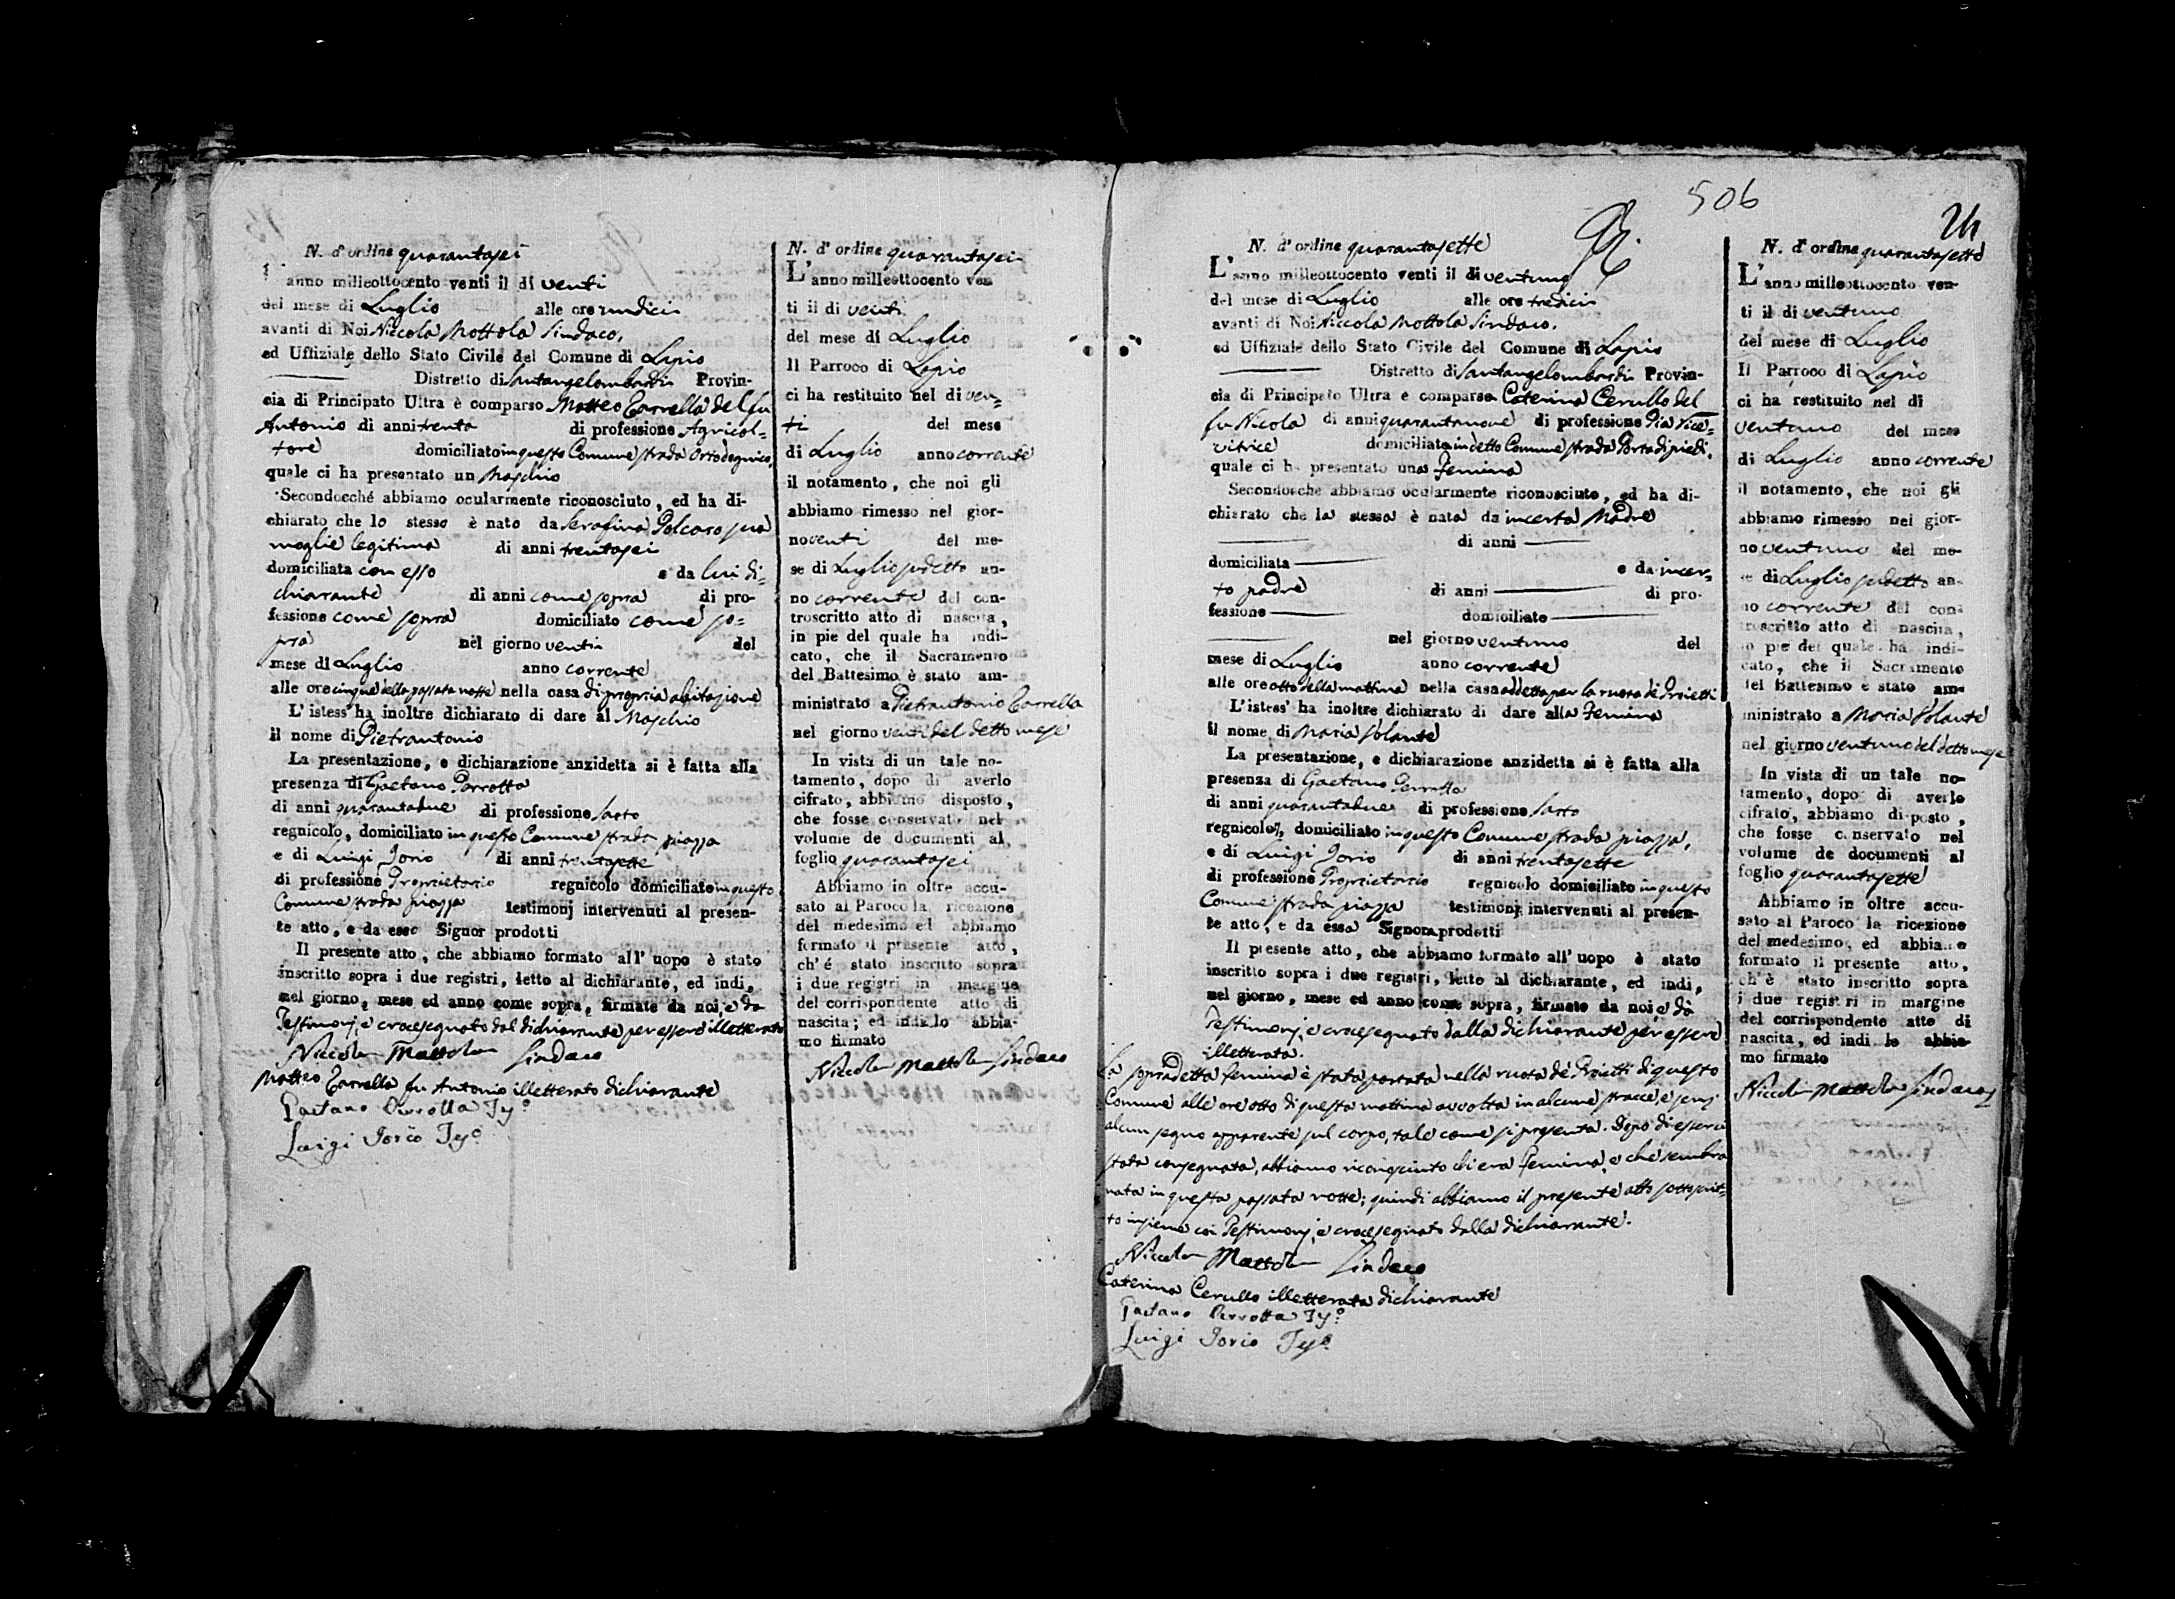 N. d'ordine quarantasei
anno milleottocento venti il dì venti
del mese di Luglio alle ore undici
avanti di Noi Niccola Mottola Sindaco,
ed Uffiziale dello Stato Civile del Comune di Lapio
Distretto di Santangelombardi Provin-
cia di Principato Ultra è comparso Matteo Carrella del fu
Antonio di anni trenta di professione Agricol=
tore domiciliato in questo Comune strada
quale ci ha presentato un Maschio
Secondocché abbiamo ocularmente riconosciuto, ed ha di-
chiarato che lo stesso è nato da Serafina Polcaro sua
moglie legitima di anni trentasei
domiciliata con esso e da lui di=
chiarante di anni come sopra di pro-
fessione come sopra domiciliato come so=
pra nel giorno venti del
mese di Luglio anno corrente
alle ore cinque della passata notte nella casa di propria abitazione
L'istess' ha inoltre dichiarato di dare al Maschio
il nome di Pietrantonio
La presentazione, e dichiarazione anzidetta si è fatta alla
presenza di Gaetano Perrotta
di anni quarantadue di professione Sarto
regnicolo, domiciliato in questo Comune strada piazza
e di Luigi Iorio di anni trentasette
di professione Proprietario regnicolo domiciliato in questo
Comune strada piazza testimonj intervenuti al presen-
te atto, e da esso Signor prodotti
Il presente atto, che abbiamo formato all'uopo è stato
inscritto sopra i due registri, letto al dichiarante, ed indi,
nel giorno, mese ed anno come sopra, firmato da noi, e da
Testimonj, e crocesegnato dal dichiarante per essere illetterato
Niccola Mottola Sindaco
Matteo Carrella fu Antonio illetterato dichiarante
Gaetano Perrotta Tes.º
Luigi Iorio Tes.º
N. d'ordine quarantasei
L'anno milleottocento ven
ti il di venti
del mese di Luglio
Il Parroco di Lapio
ci ha restituito nel di ven=
ti del mese
di Luglio anno corrente
il notamento, che noi gli
abbiamo rimesso nel gior-
no venti del me-
se di Luglio sudetto an-
no corrente del con-
troscritto atto di nascita,
in piè del quale ha indi-
cato, che il Sacramento
del Battesimo è stato am-
ministrato a Pietrantonio Carrella
nel giorno venti del detto mese
In vista di un tale no-
tamento, dopo di averlo
cifrato, abbiamo disposto,
che fosse conservato nel
volume de documenti al
foglio quarantasei
Abbiamo in oltre accu-
sato al Paroco la ricezione
del medesimo ed abbiamo
formato il presente atto,
ch'é stato inscritto sopra
i due registri in margine
del corrispondente atto di
nascita; ed indi lo abbia-
mo firmato
Niccola Mottola Sindaco
506
24
N. d'ordine quarantasette
L'anno milleottocento venti il di ventuno
del mese di Luglio alle ore tredici
avanti di Noi Niccola Mottola Sindaco.
ed Uffiziale dello Stato Civile del Comune di Lapio
Distretto di Santangelombardi Provin-
cia di Principato Ultra è comparsa Caterina Cerullo del
fu Nicola di anni quarantanove di professione Pia Rice=
vitrice domiciliata in detto Comune strada Porta di piedi.
quale ci ha presentato una Femina
Secondocche abbiamo ocularmente riconosciuto, ed ha di-
chiarato che la stessa è nata da incerta Madre
di anni
domiciliata e da incer=
to padre di anni di pro-
fessione domiciliato
nel giorno ventuno del
mese di Luglio anno corrente
alle ore otto della mattina nella casa addetta per la ruota de Proietti
L'istess' ha inoltre dichiarato di dare alla Femina
il nome di Maria Volante
La presentazione, e dichiarazione anzidetta si è fatta alla
presenza di Gaetano Perrotta
di anni quarantadue di professione Sarto
regnicolo, domiciliato in questo Comune strada piazza,
e di Luigi Iorio di anni trentasette
di professione Proprietario regnicolo domiciliato in questo
Comune strada piazza testimonj intervenuti al presen-
te atto, e da essa Signora prodotti
Il presente atto, che abbiamo formato all'uopo è stato
inscritto sopra i due registri, letto al dichiarante, ed indi,
nel giorno, mese ed anno come sopra, firmato da noi, e da
Testimonj, e crocesegnato dalla dichiarante per essere
illetterata.
La sopradetta femina è stata portata nella ruota de Proietti di questo
Comune alle ore otto di questa mattina avvolta in alcune stracce, e senz
alcun segno apparente sul corpo, tale come si presenta. Dopo di essere
stata consegnata, abbiamo riconosciuto ch'era Femina, e che sembra
nata in questa passata notte; quindi abbiamo il presente atto sottoscrit=
to insieme coi Testimonj, e crocesegnato dalla dichiarante.
Niccola Mottola Sindaco
Caterina Cerullo illetterata dichiarante
Gaetano Perrotta Tes.º
Luigi Iorio Tes.º
N. d'ordine quarantasette
L'anno milleottocento ven-
ti il di ventuno
del mese di Luglio
Il Parroco di Lapio
ci ha restituito nel di
ventuno del mese
di Luglio anno corrente
il notamento, che noi gli
abbiamo rimesso nel gior-
no ventuno del me-
se di Luglio sudetto an-
no corrente del con-
troscritto atto di nascita,
in piè del quale ha indi-
cato, che il Sacramento
del Battesimo è stato am-
ministrato a Maria Volante
nel giorno ventuno del detto mese
In vista di un tale no-
tamento, dopo di averlo
cifrato, abbiamo disposto,
che fosse conservato nel
volume de documenti al
foglio quarantasette
Abbiamo in oltre accu-
sato al Paroco la ricezione
del medesimo, ed abbiamo
formato il presente atto,
ch'è stato inscritto sopra
i due registri in margine
del corrispondente atto di
nascita, ed indi lo abbia-
mo firmato
Niccola Mottola Sindaco